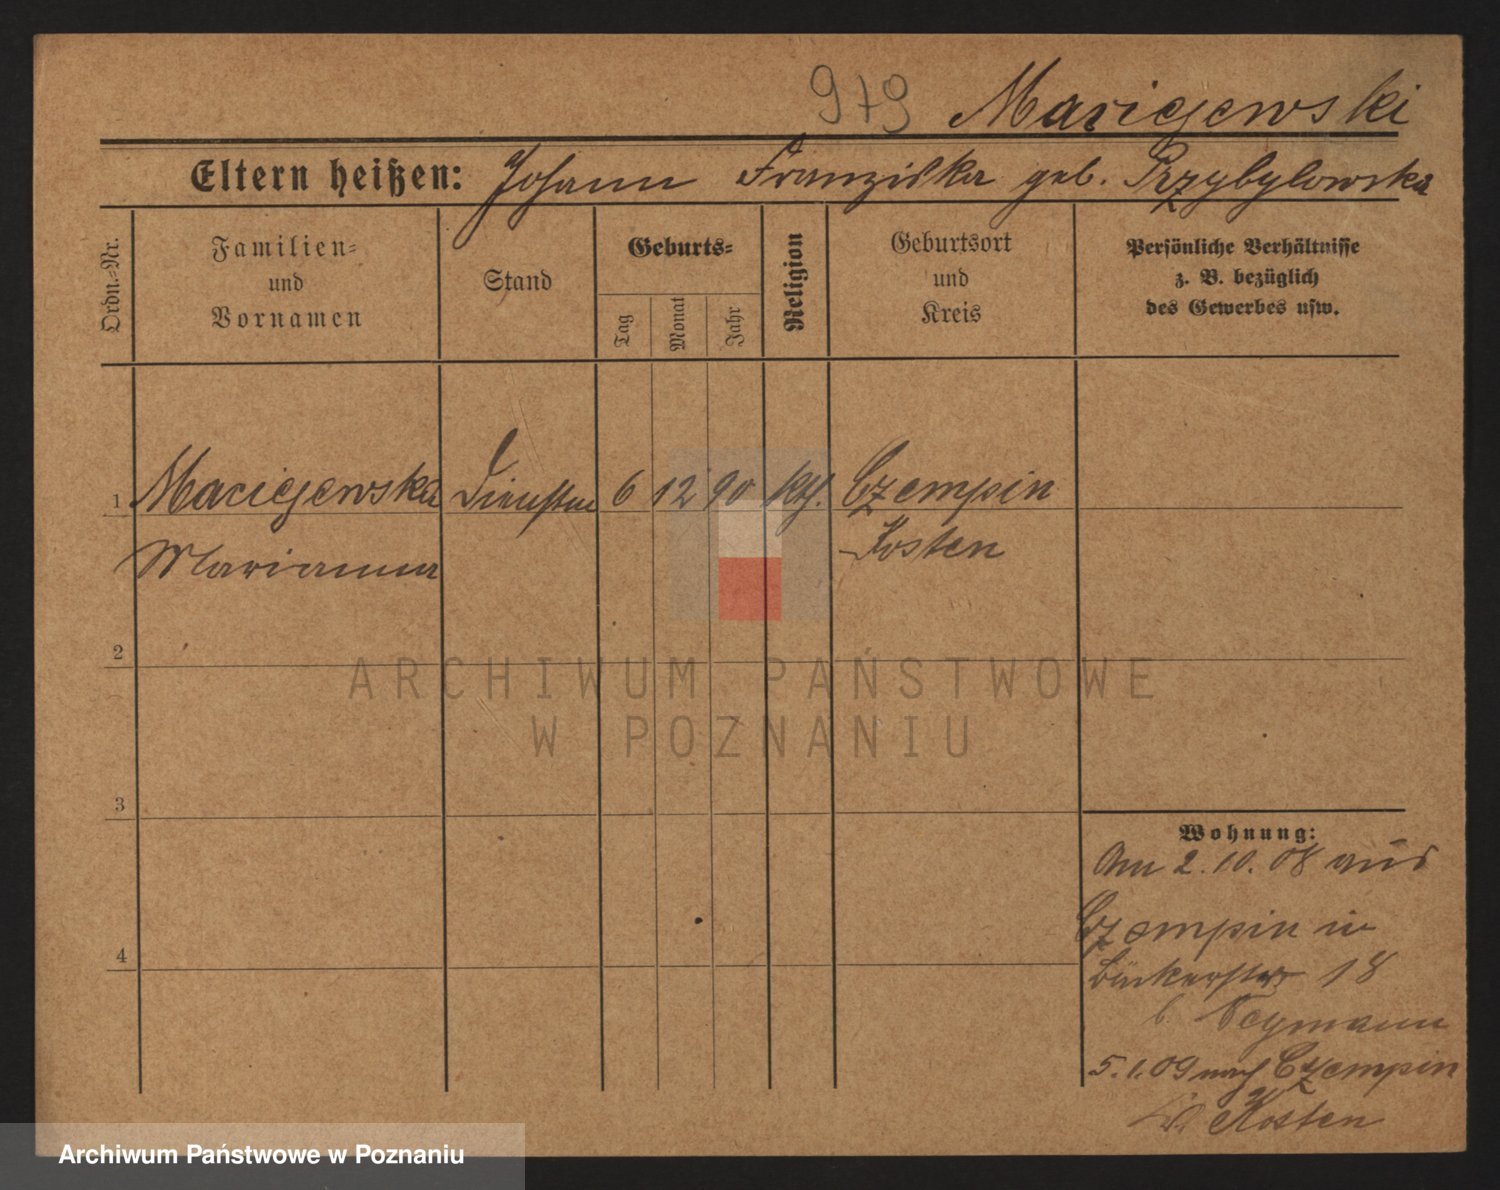 979 Maciejewski
Eltern heißen: Johann Franziska geb. Przybylowska
Ordn.-Nr.
Familien-
und
Vornamen
Stand
Geburts-
Tag
Monat
Jahr
Religion
Geburtsort
und
Kreis
Persönliche Verhältnisse
z. B. bezüglich
des Gewerbes usw.
1 Maciejewska 6 12 90 kth. Czempin
Marianna Kosten
2
3
4
Wohnung:
Am 2.10.08 aus
Czempin in
18
b.
5.1.09 nach Czempin
Kosten
ARCHIWUM PAŃSTWOWE
W POZNANIU
Archiwum Państwowe w Poznaniu